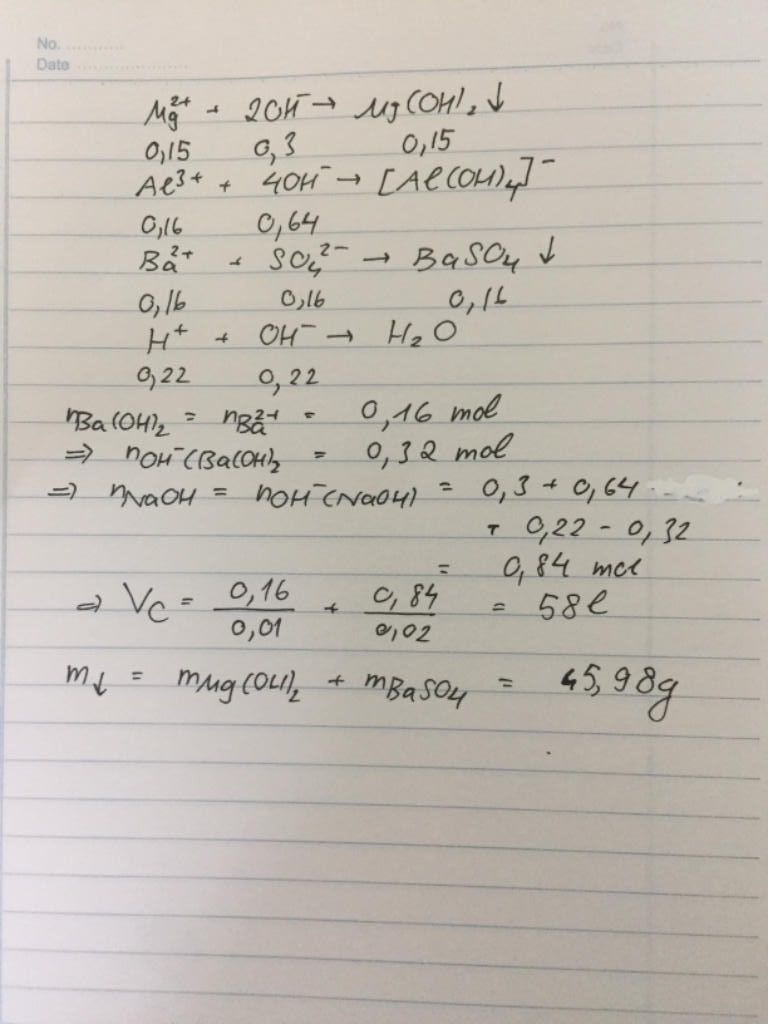 No. ...........
Date .......................
Mg²⁺ + 2OH⁻ → Mg(OH)₂ ↓
0,15 0,3 0,15
Al³⁺ + 4OH⁻ → [Al(OH)₄]⁻
0,16 0,64
Ba²⁺ + SO₄²⁻ → BaSO₄ ↓
0,16 0,16 0,16
H⁺ + OH⁻ → H₂O
0,22 0,22
nBa(OH)₂ = nBa²⁺ = 0,16 mol
⇒ nOH⁻(Ba(OH)₂ = 0,32 mol
⇒ nNaOH = nOH⁻(NaOH) = 0,3 + 0,64
+ 0,22 - 0,32
= 0,84 mol
⇒ VC = 0,16/0,01 + 0,84/0,02 = 58l
m↓ = mMg(OH)₂ + mBaSO₄ = 45,98g